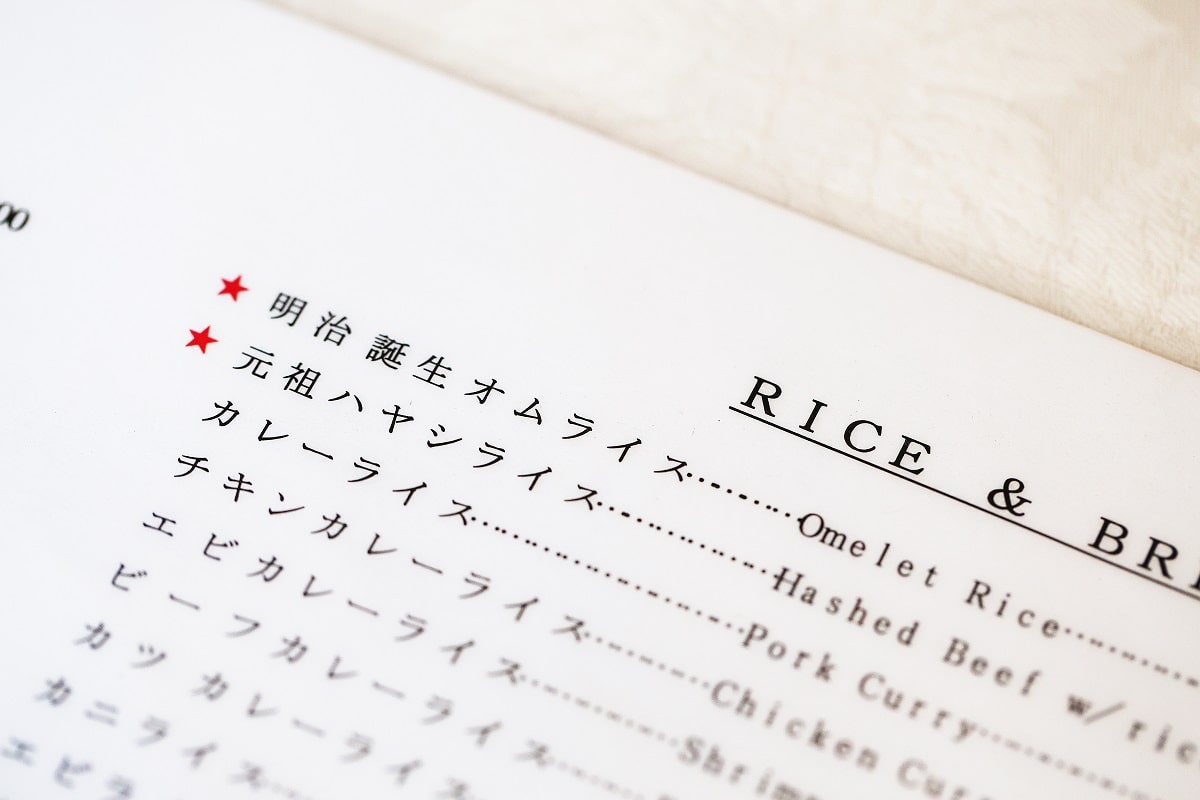 00
RICE & BR
★ 明治誕生オムライス………Omelet Rice………
★ 元祖ハヤシライス………Hashed Beef w/ric
カレーライス………Pork Curry………
チキンカレーライス………Chicken Cur
エビカレーライス………Shrim
ビーフカレーライス………
カツカレーライス
カニライス………
エビラ